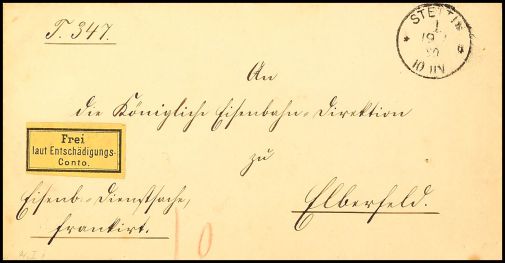 T. 347.
STETTIN
An
die Königliche Eisenbahn-Direktion
Frei
laut Entschädigungs-
Conto.
zu
Eisenb.-Dienstsache,
Elberfeld.
frankirt.
10